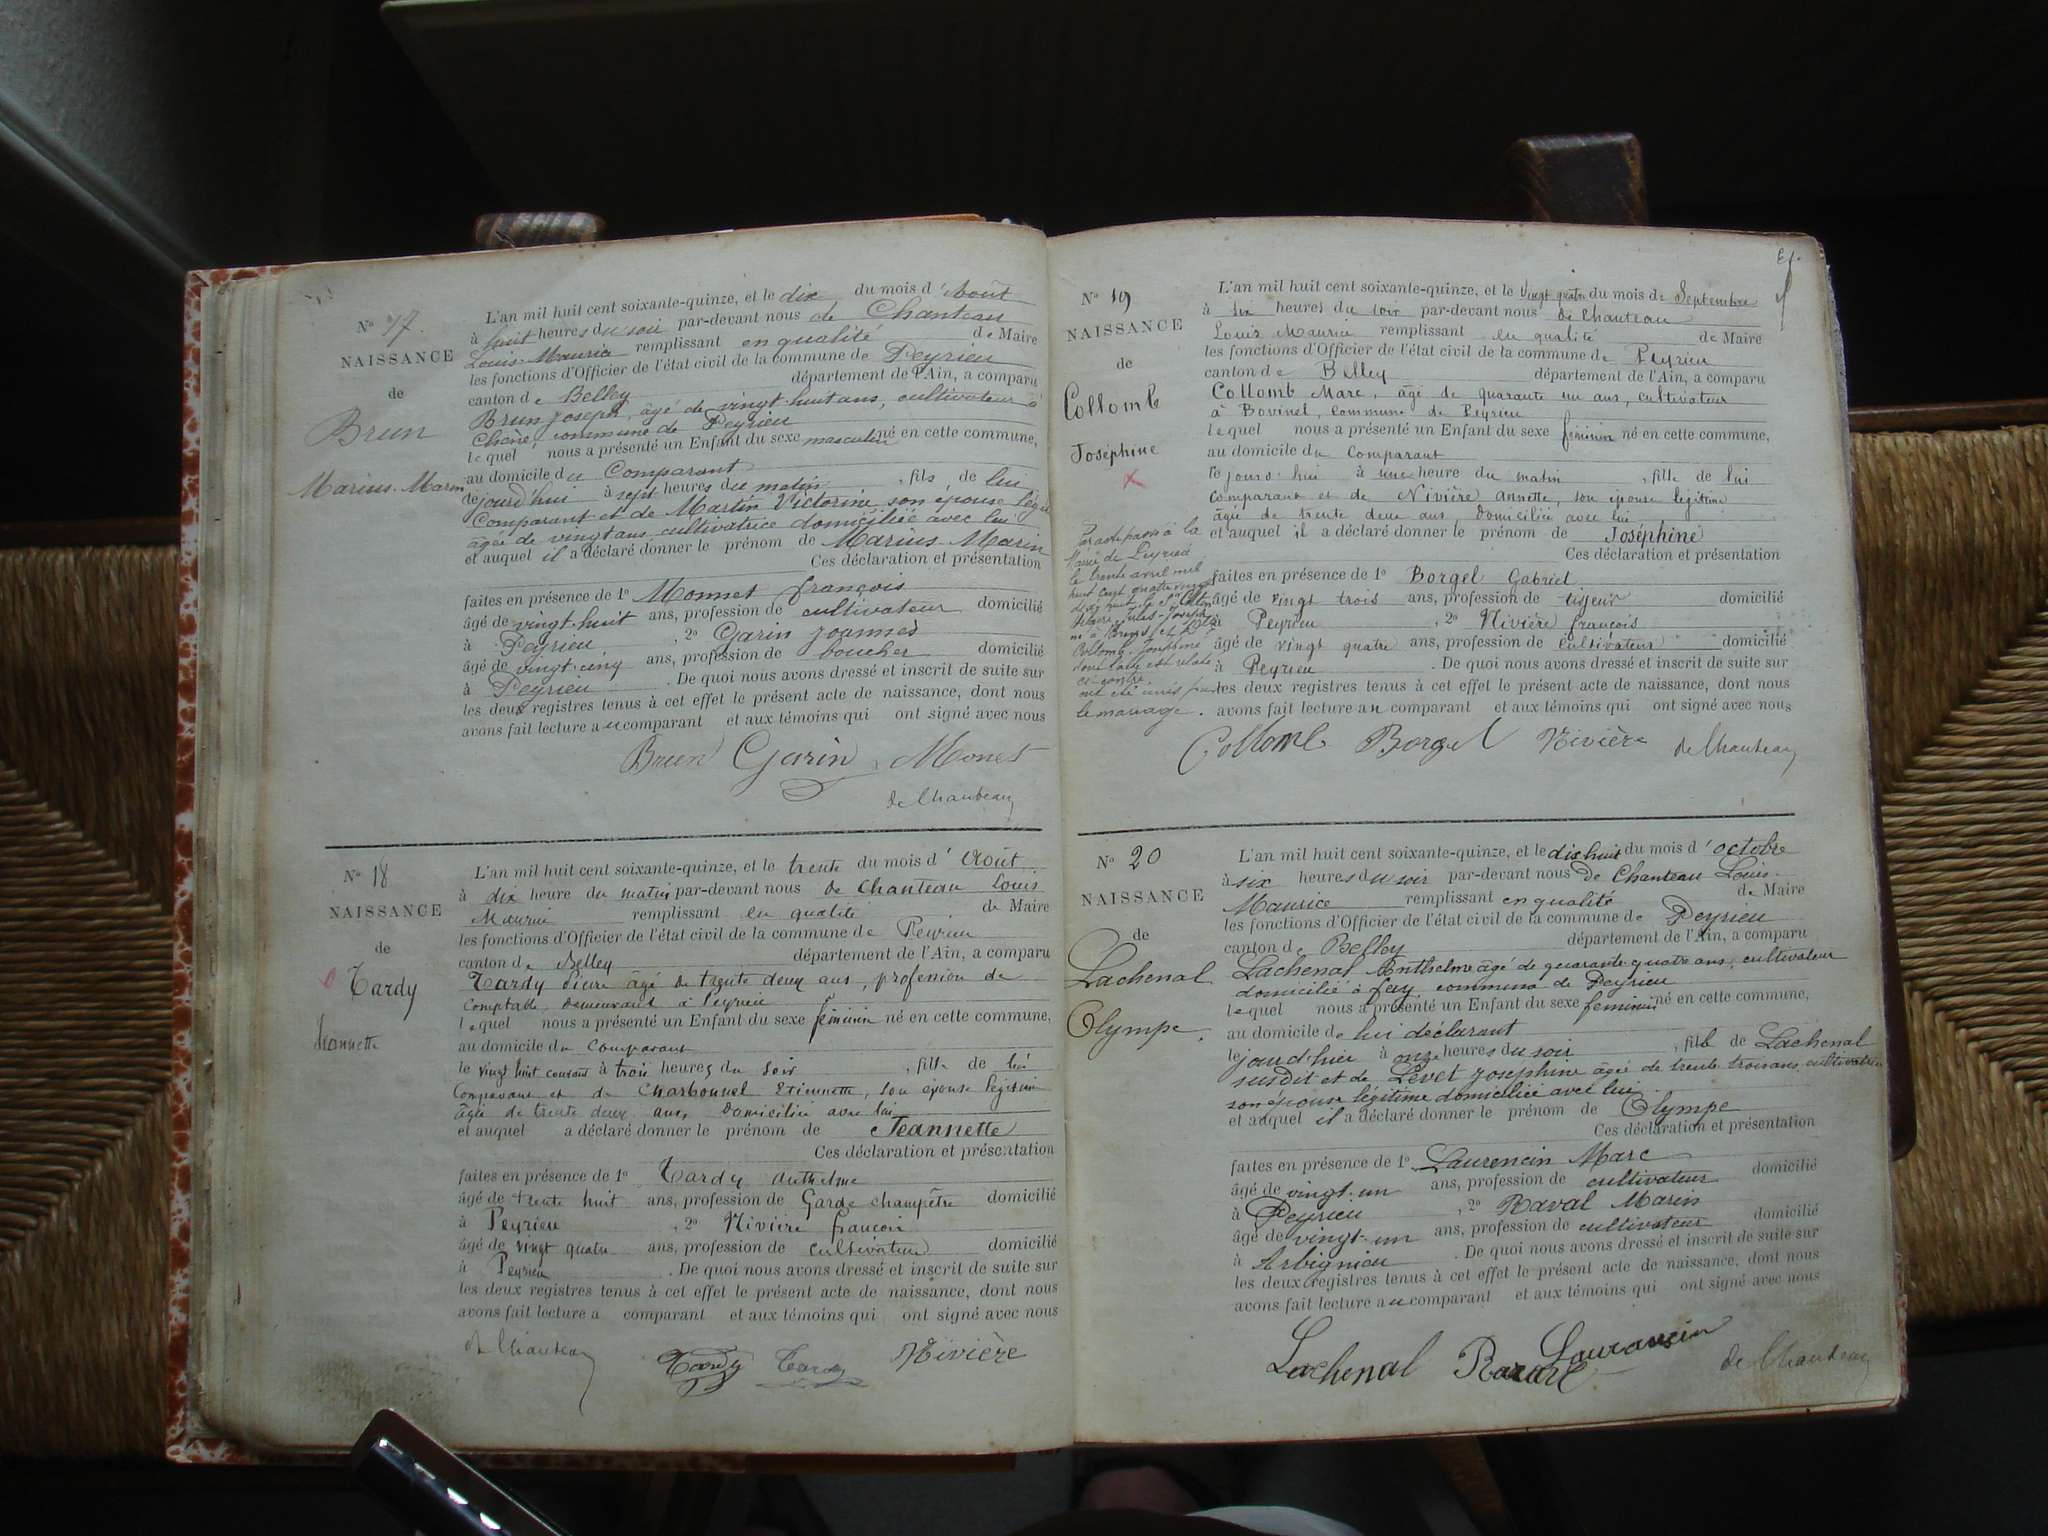 Nº 17.
NAISSANCE
de
Brun
Marius-Marin
L'an mil huit cent soixante-quinze, et le dix du mois d'Août
à huit heures du soir par-devant nous de Chanteau
Louis-Maurice remplissant en qualité de Maire
les fonctions d'Officier de l'état civil de la commune de Peyrieu
canton de Belley département de l'Ain, a comparu
Brun Joseph, âgé de vingt-huit ans, cultivateur à
commune de Peyrieu
lequel nous a présenté un Enfant du sexe masculin né en cette commune,
au domicile du Comparant
ce jourd'hui à sept heures du matin, fils de lui
Comparant et de Martin Victorine, son épouse
âgée de vingt ans, cultivatrice domiciliée avec lui
et auquel il a déclaré donner le prénom de Marius Marin
Ces déclaration et présentation
faites en présence de 1º Monnet françois
âgé de vingt-huit ans, profession de cultivateur domicilié
à Peyrieu, 2º Garin Joannes
âgé de vingt-cinq ans, profession de boucher domicilié
à Peyrieu. De quoi nous avons dressé et inscrit de suite sur
les deux registres tenus à cet effet le présent acte de naissance, dont nous
avons fait lecture au comparant et aux témoins qui ont signé avec nous
Brun Garin Monet
de Chanteau
Nº 18
NAISSANCE
de
Tardy
Jeannette
L'an mil huit cent soixante-quinze, et le trente du mois d'Août
à dix heure du matin par-devant nous de Chanteau Louis
Maurice remplissant en qualité de Maire
les fonctions d'Officier de l'état civil de la commune de Peyrieu
canton de Belley département de l'Ain, a comparu
Tardy Pierre âgé de trente deux ans, profession de
comptable, demeurant à Peyrieu
lequel nous a présenté un Enfant du sexe féminin né en cette commune,
au domicile du comparant
le vingt huit courant à trois heures du soir, fille de lui
comparant et de Charbonnel Etiennette, son épouse légitime
âgée de trente deux ans, domiciliée avec lui
et auquel a déclaré donner le prénom de Jeannette
Ces déclaration et présentation
faites en présence de 1º Tardy Anthelme
âgé de trente huit ans, profession de Garde champêtre domicilié
à Peyrieu, 2º Nivière françois
âgé de vingt quatre ans, profession de cultivateur domicilié
à Peyrieu. De quoi nous avons dressé et inscrit de suite sur
les deux registres tenus à cet effet le présent acte de naissance, dont nous
avons fait lecture a comparant et aux témoins qui ont signé avec nous
de Chanteau Tardy Tardy Nivière
Nº 19
NAISSANCE
de
Collomb
Joséphine
Par acte passé à la
Mairie de Peyrieu
le trente avril mil
huit cent quatre vingt
dix huit
Jules-Joseph
né à
Collomb Joséphine
dont l'acte est relaté
ci-contre,
ont été unis par
le mariage.
L'an mil huit cent soixante-quinze, et le vingt quatre du mois de Septembre
à six heures du soir par-devant nous de Chanteau
Louis Maurice remplissant en qualité de Maire
les fonctions d'Officier de l'état civil de la commune de Peyrieu
canton de Belley département de l'Ain, a comparu
Collomb Marc, âgé de quarante un ans, cultivateur
à Bovinel, commune de Peyrieu
lequel nous a présenté un Enfant du sexe féminin né en cette commune,
au domicile du Comparant
ce jourd'hui à une heure du matin, fille de lui
comparant et de Nivière Annette, son épouse légitime
âgée de trente deux ans, domiciliée avec lui
et auquel il a déclaré donner le prénom de Joséphine
Ces déclaration et présentation
faites en présence de 1º Borgel Gabriel
âgé de vingt trois ans, profession de tisseur domicilié
à Peyrieu, 2º Nivière françois
âgé de vingt quatre ans, profession de cultivateur domicilié
à Peyrieu. De quoi nous avons dressé et inscrit de suite sur
les deux registres tenus à cet effet le présent acte de naissance, dont nous
avons fait lecture au comparant et aux témoins qui ont signé avec nous
Collomb Borgel Nivière de Chanteau
Nº 20
NAISSANCE
de
Lachenal
Olympe.
L'an mil huit cent soixante-quinze, et le dix huit du mois d'octobre
à six heures du soir par-devant nous de Chanteau Louis-
Maurice remplissant en qualité de Maire
les fonctions d'Officier de l'état civil de la commune de Peyrieu
canton de Belley département de l'Ain, a comparu
Lachenal Anthelme âgé de quarante-quatre ans, cultivateur
domicilié à fay commune de Peyrieu
lequel nous a présenté un Enfant du sexe féminin né en cette commune,
au domicile de lui déclarant
le jour d'hier à onze heures du soir, fille de Lachenal
susdit et de Levet Josephine âgée de trente trois ans, cultivatrice
son épouse légitime domiciliée avec lui
et auquel il a déclaré donner le prénom de Olympe
Ces déclaration et présentation
faites en présence de 1º Laurencin Marc
âgé de vingt-un ans, profession de cultivateur domicilié
à Peyrieu, 2º Raval Marin
âgé de vingt-un ans, profession de cultivateur domicilié
à Arbignieu. De quoi nous avons dressé et inscrit de suite sur
les deux registres tenus à cet effet le présent acte de naissance, dont nous
avons fait lecture au comparant et aux témoins qui ont signé avec nous
Lachenal Laurancin de Chanteau